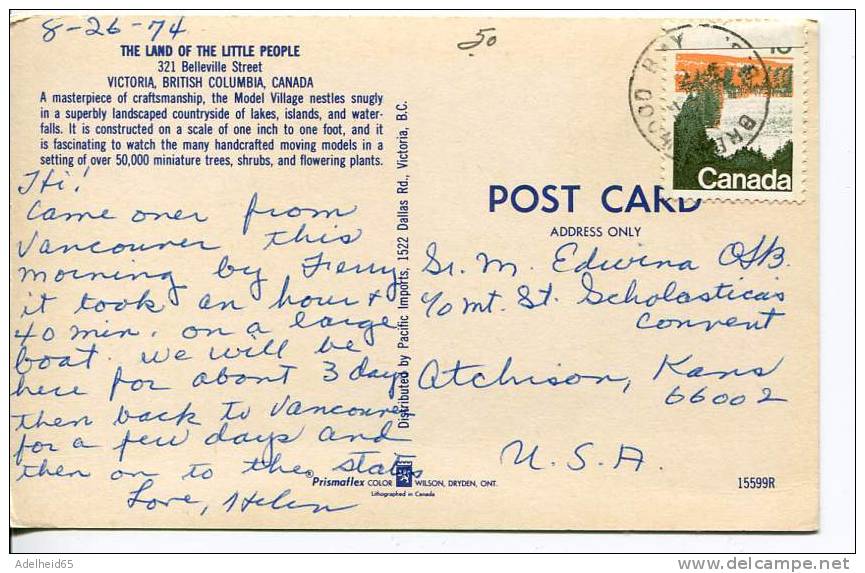 8-26-74
50
THE LAND OF THE LITTLE PEOPLE
321 Belleville Street
VICTORIA, BRITISH COLUMBIA, CANADA
A masterpiece of craftsmanship, the Model Village nestles snugly
in a superbly landscaped countryside of lakes, islands, and water-
falls. It is constructed on a scale of one inch to one foot, and it
is fascinating to watch the many handcrafted moving models in a
setting of over 50,000 miniature trees, shrubs, and flowering plants.
Hi!
Came over from
Vancouver this
morning by Ferry
it took an hour +
40 min. on a large
boat. We will be
here for about 3 days
then back to Vancouver
for a few days and
then on to the states
Love, Helen
Distributed by Pacific Imports, 1522 Dallas Rd., Victoria, B.C.
Canada
POST CARD
ADDRESS ONLY
Sr. M. Edwina OSB.
c/o Mt. St. Scholastica's
Convent
Atchison, Kans
66002
U.S.A.
Prismaflex COLOR WILSON, DRYDEN, ONT.
Lithographed in Canada
15599R
Adelheid65
delcampe.net